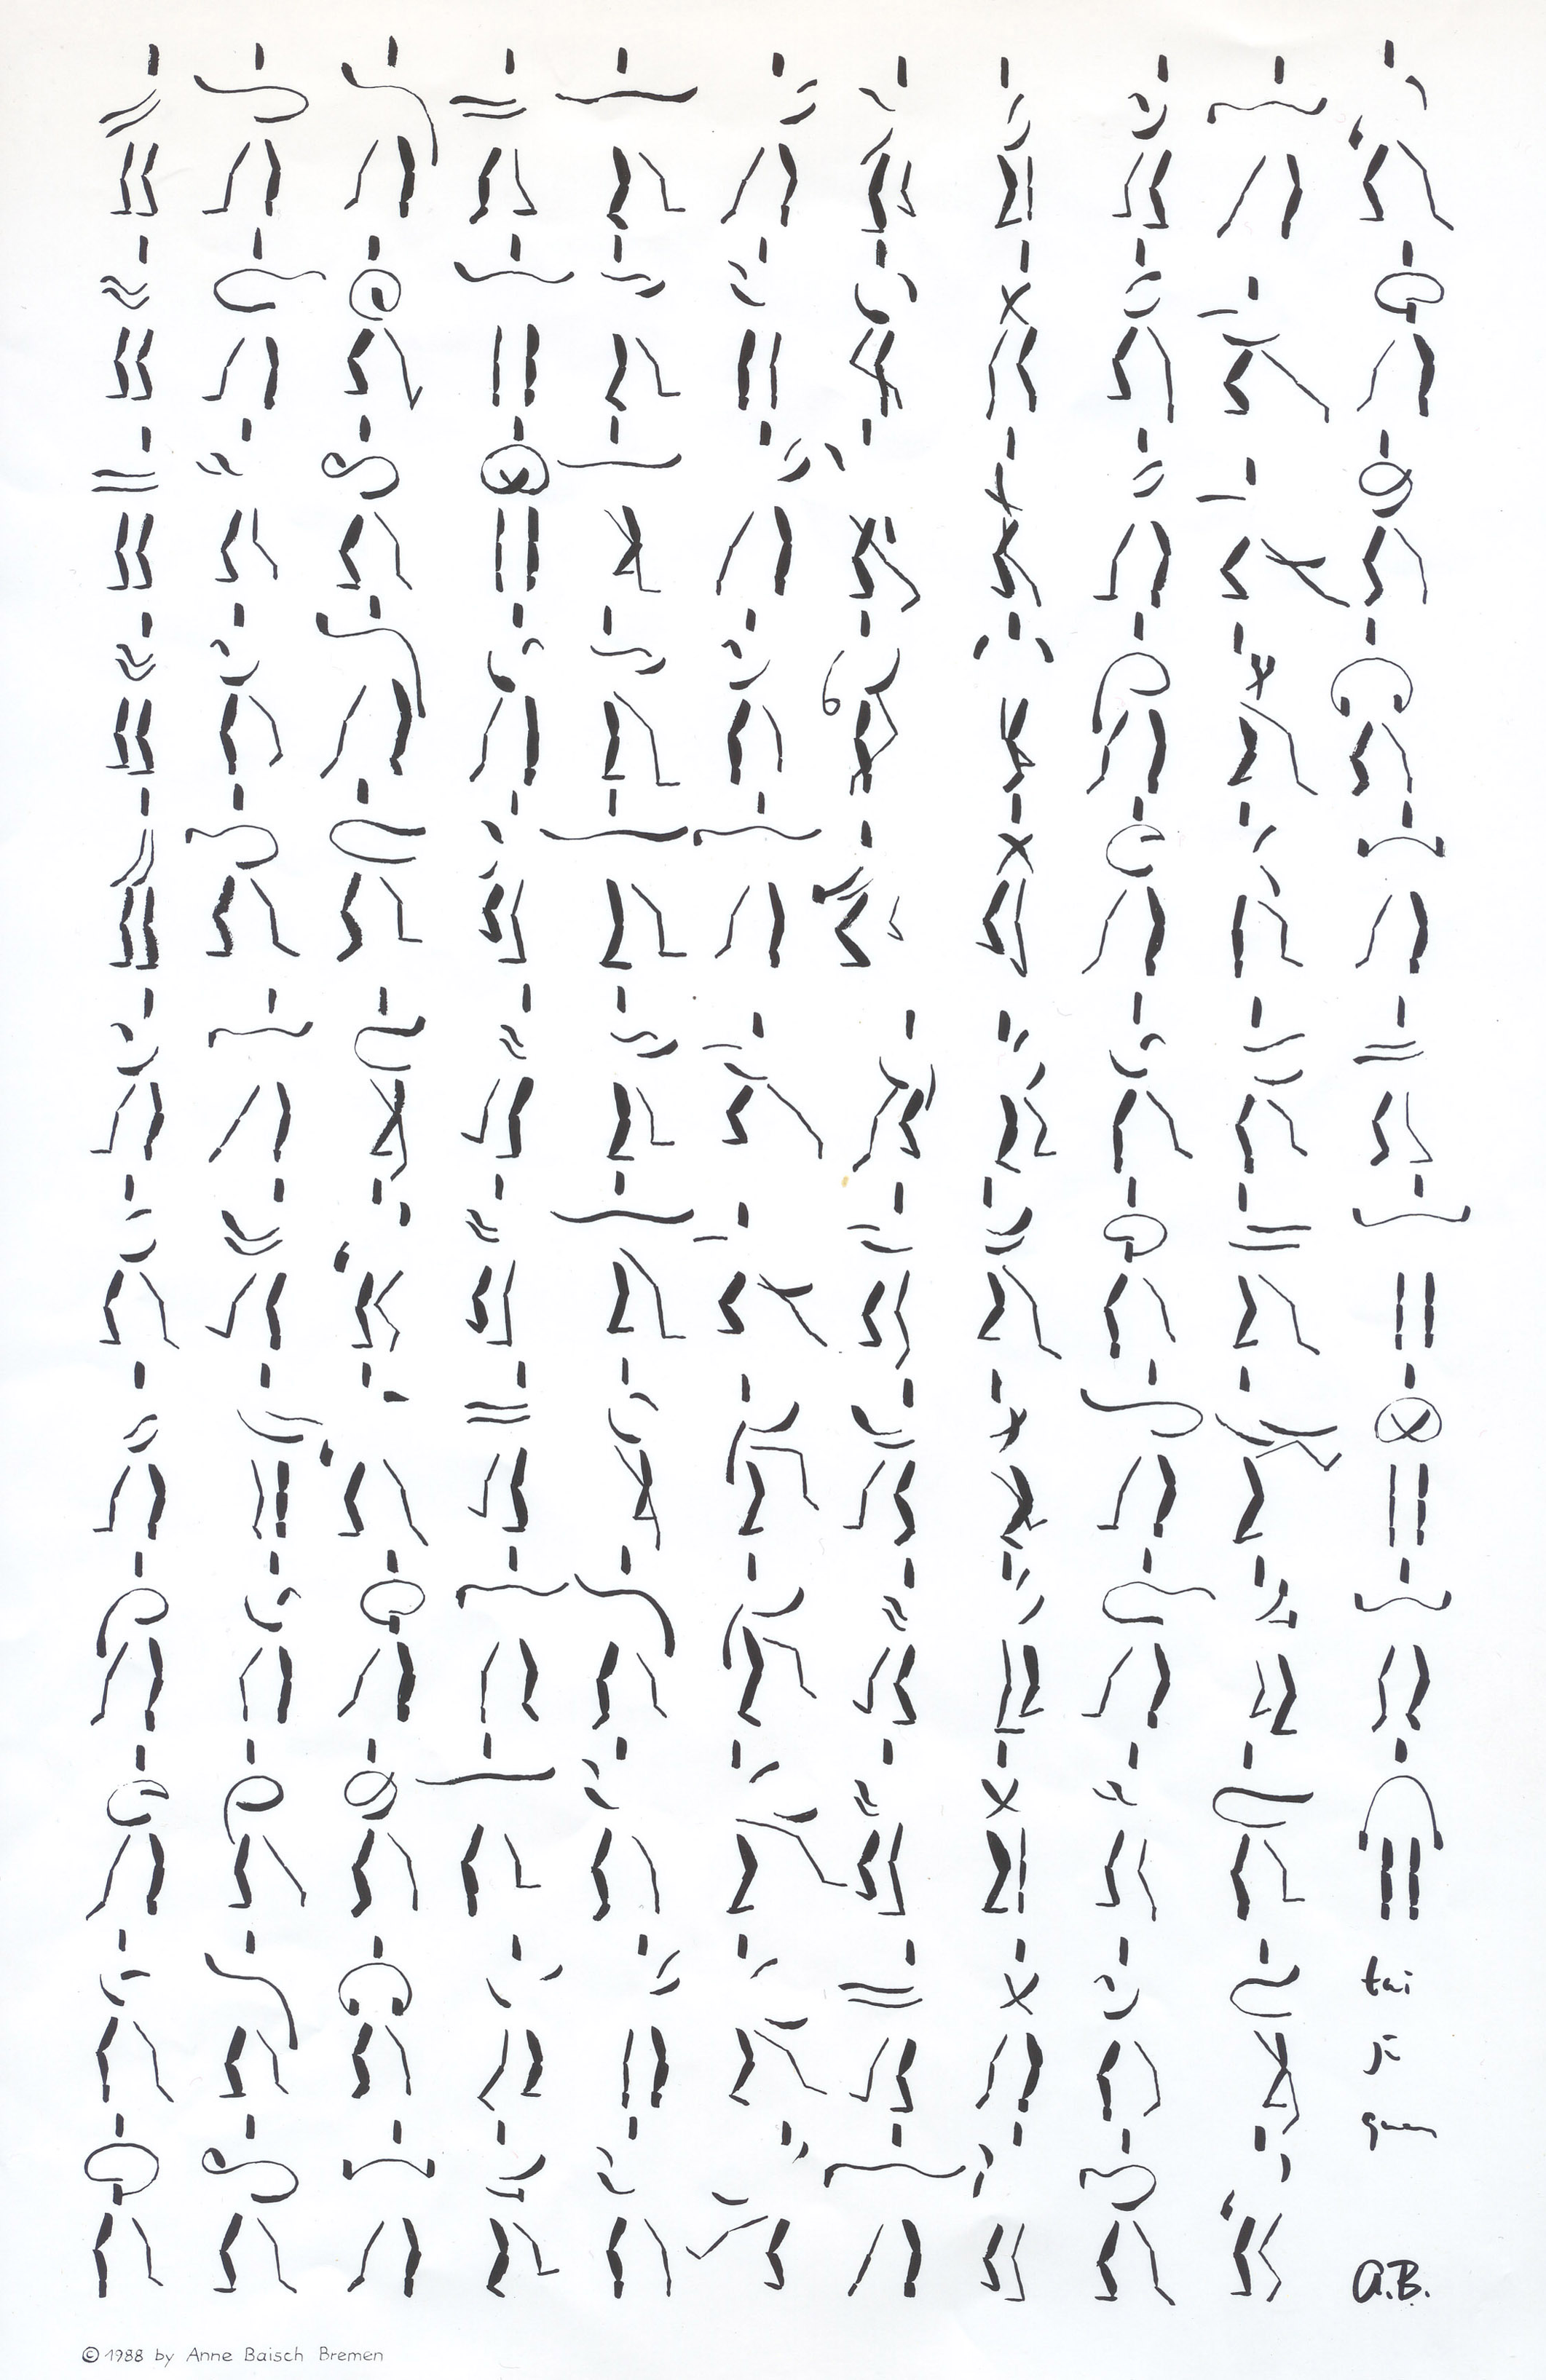 tai
ji
quan
A.B.
© 1988 by Anne Baisch Bremen